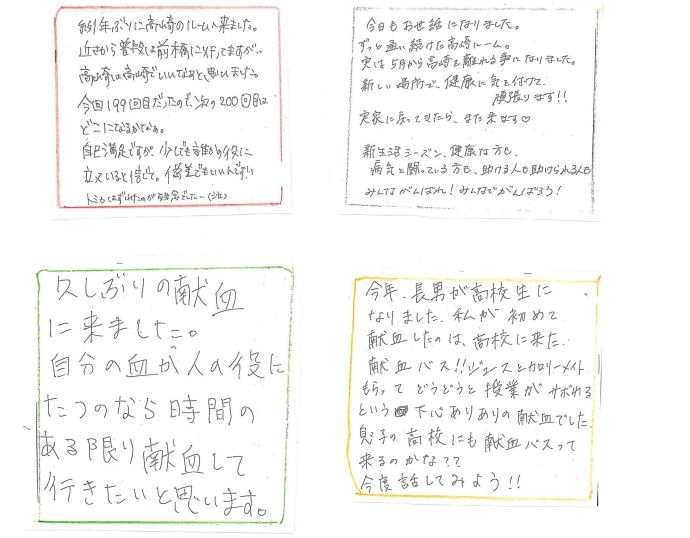 約1年ぶりに高崎のルームへ来ました。
近さから普段は前橋に行ってますが、
高崎は高崎でいいなぁと思いました。
今回199回目だったので、次の200回目は
どこになるかなぁ。
自己満足ですが、少しでも誰かの役に
立っていると信じて。偽善でもいいんです!!
トミカはずれたのが残念でした…
今日もお世話になりました。
ずっと通い続けた高崎ルーム。
実は5月から高崎を離れる事になりました。
新しい場所で、健康に気を付けて、
頑張ります!!
実家に戻ってきたら、また来ます♡
新生活シーズン、健康な方も、
病気と闘っている方も、助ける人も助けられる人も
みんながんばれ!みんなでがんばろう!
久しぶりの献血
に来ました。
自分の血が人の役に
たつのなら時間の
ある限り献血して
行きたいと思います。
今年、長男が高校生に
なりました。私が初めて
献血したのは、高校に来た
献血バス!!ジュースとカロリーメイト
もらって どうどうと授業がサボれる
という 下心ありありの献血でした。
息子の高校にも献血バスって
来るのかな??
今度話してみよう!!